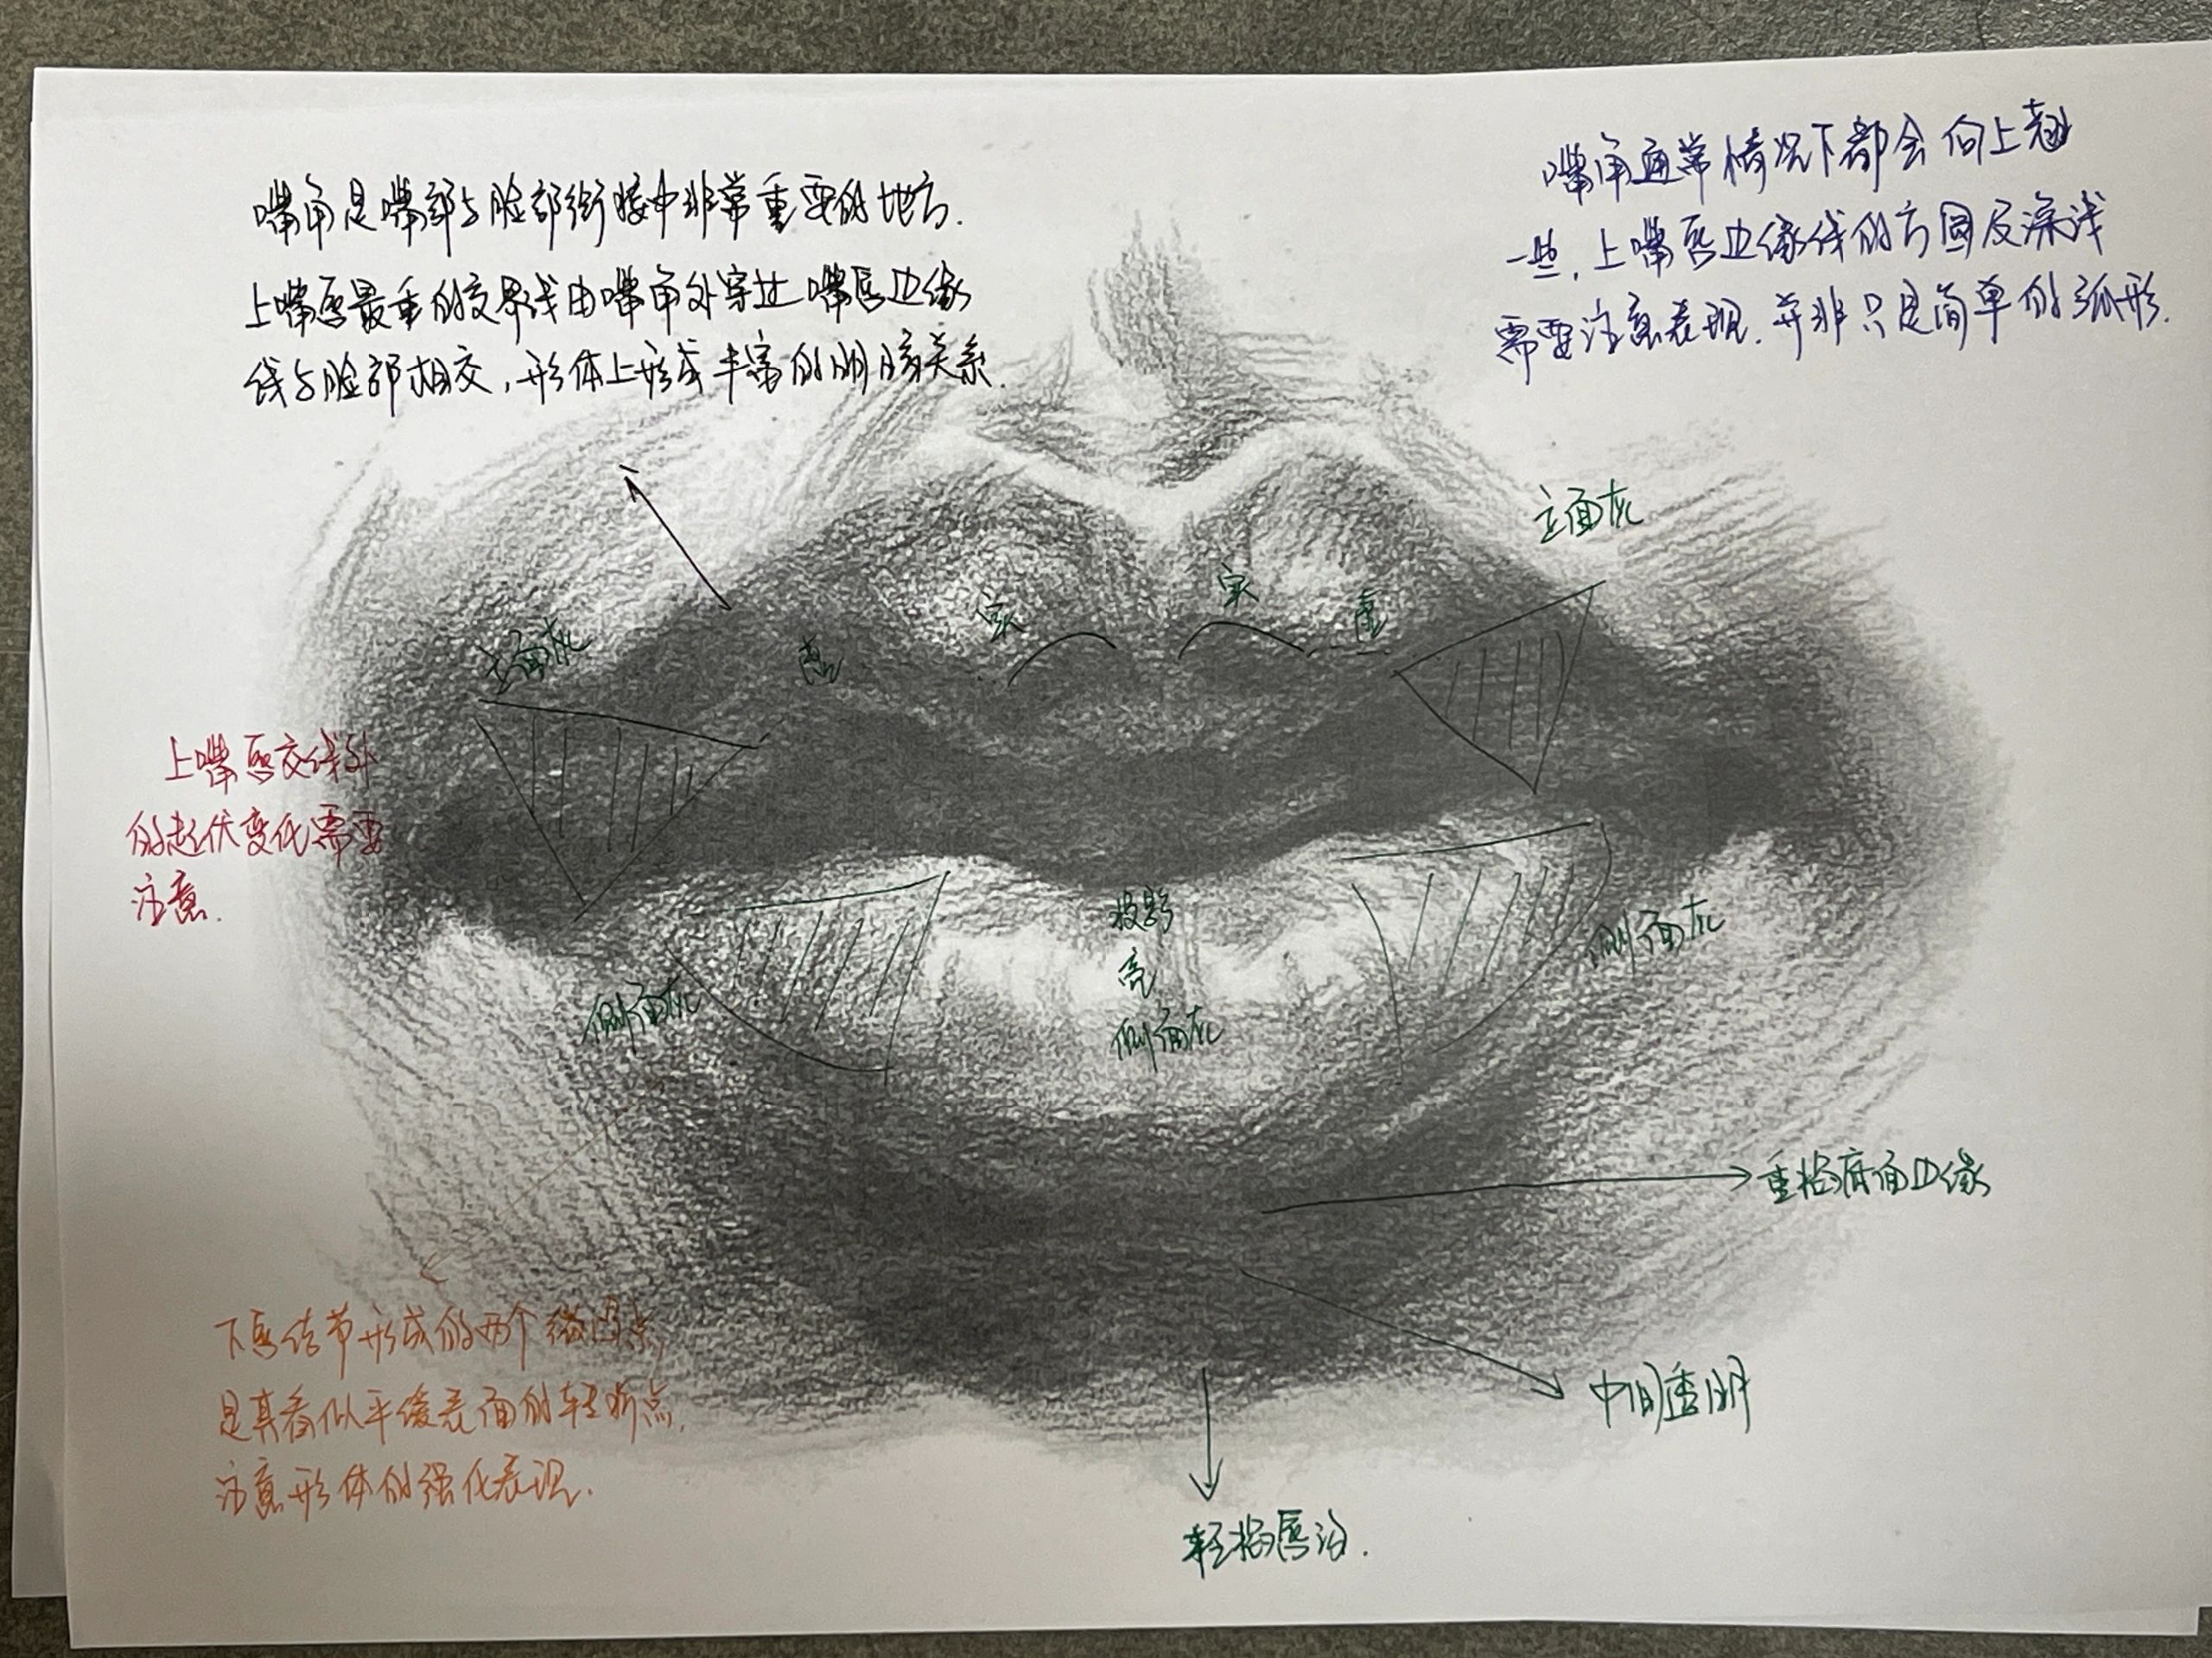 嘴角是嘴部与脸部衔接中非常重要的地方.
上嘴唇最重的交界线由嘴角处穿过嘴唇边缘
线与脸部相交,形体上形成丰富的明暗关系.
嘴角通常情况下都会向上翘
一些,上嘴唇边缘线的方圆及深浅
需要注意表现.并非只是简单的弧形.
立面灰
实
实
虚
立面灰
虚
上嘴唇交线处
的起伏变化需要
注意.
投影
亮
侧面灰
侧面灰
侧面灰
重档底面边缘
中间透明
下唇结节形成的两个微凸点
是其看似平缓表面的转折点,
注意形体的强化表现.
轻档唇沟.